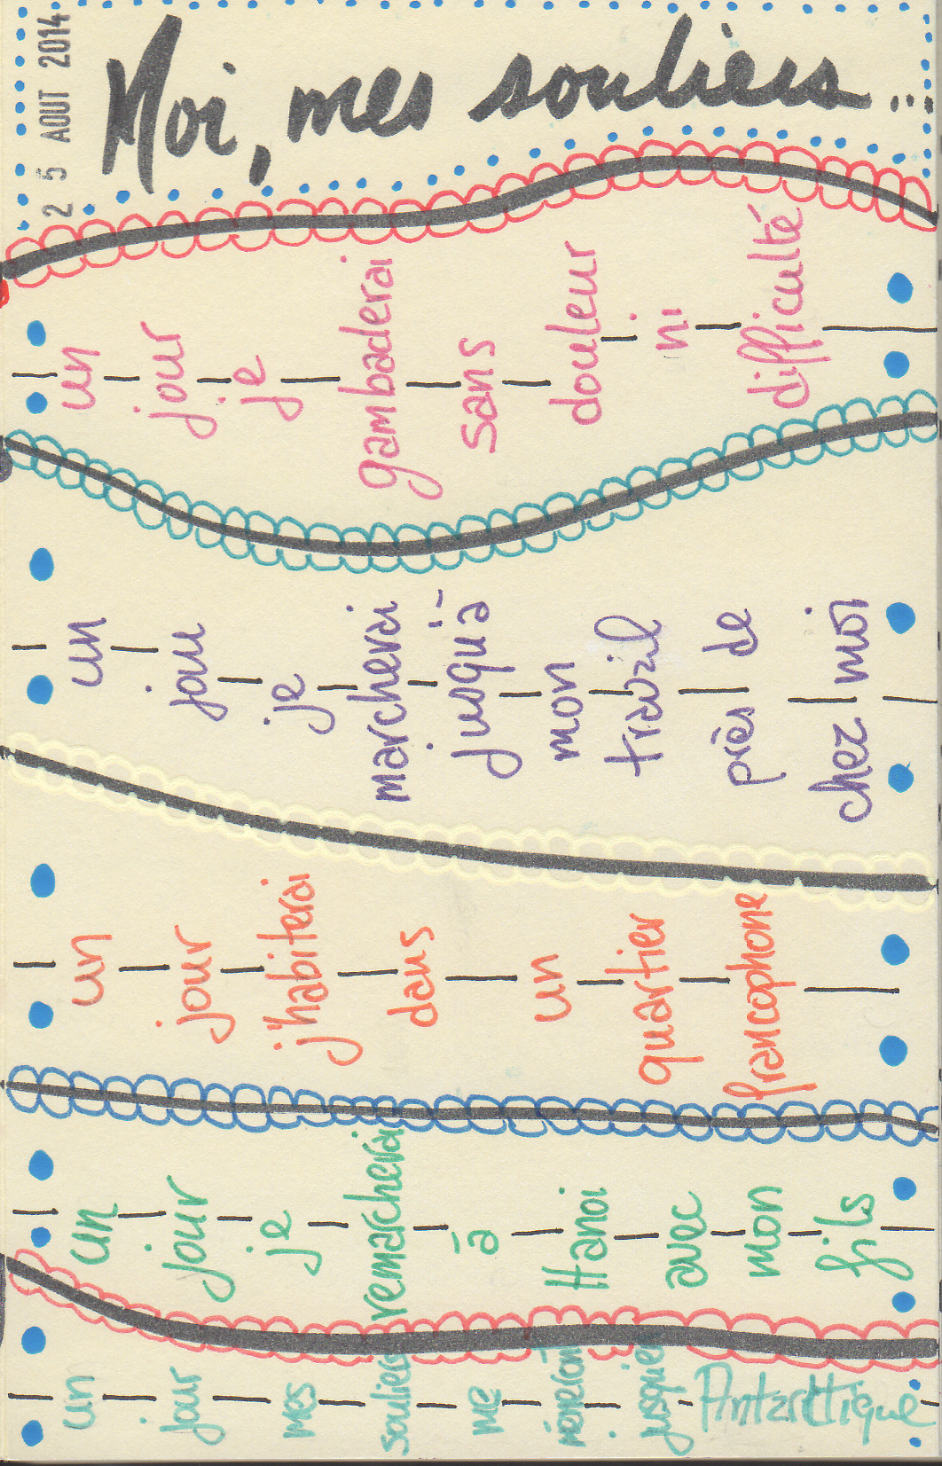 25 AOUT 2014
Moi, mes souliers...
un jour je gambaderai sans douleur ni difficulté
un jou je marcherai jusqu'à mon travail près de chez moi
un jour j'habiterai dans un quartier francophone
un jour je remarcherai à Hanoi avec mon fils
un jour mes souliers me mèneront jusqu'en Antarctique